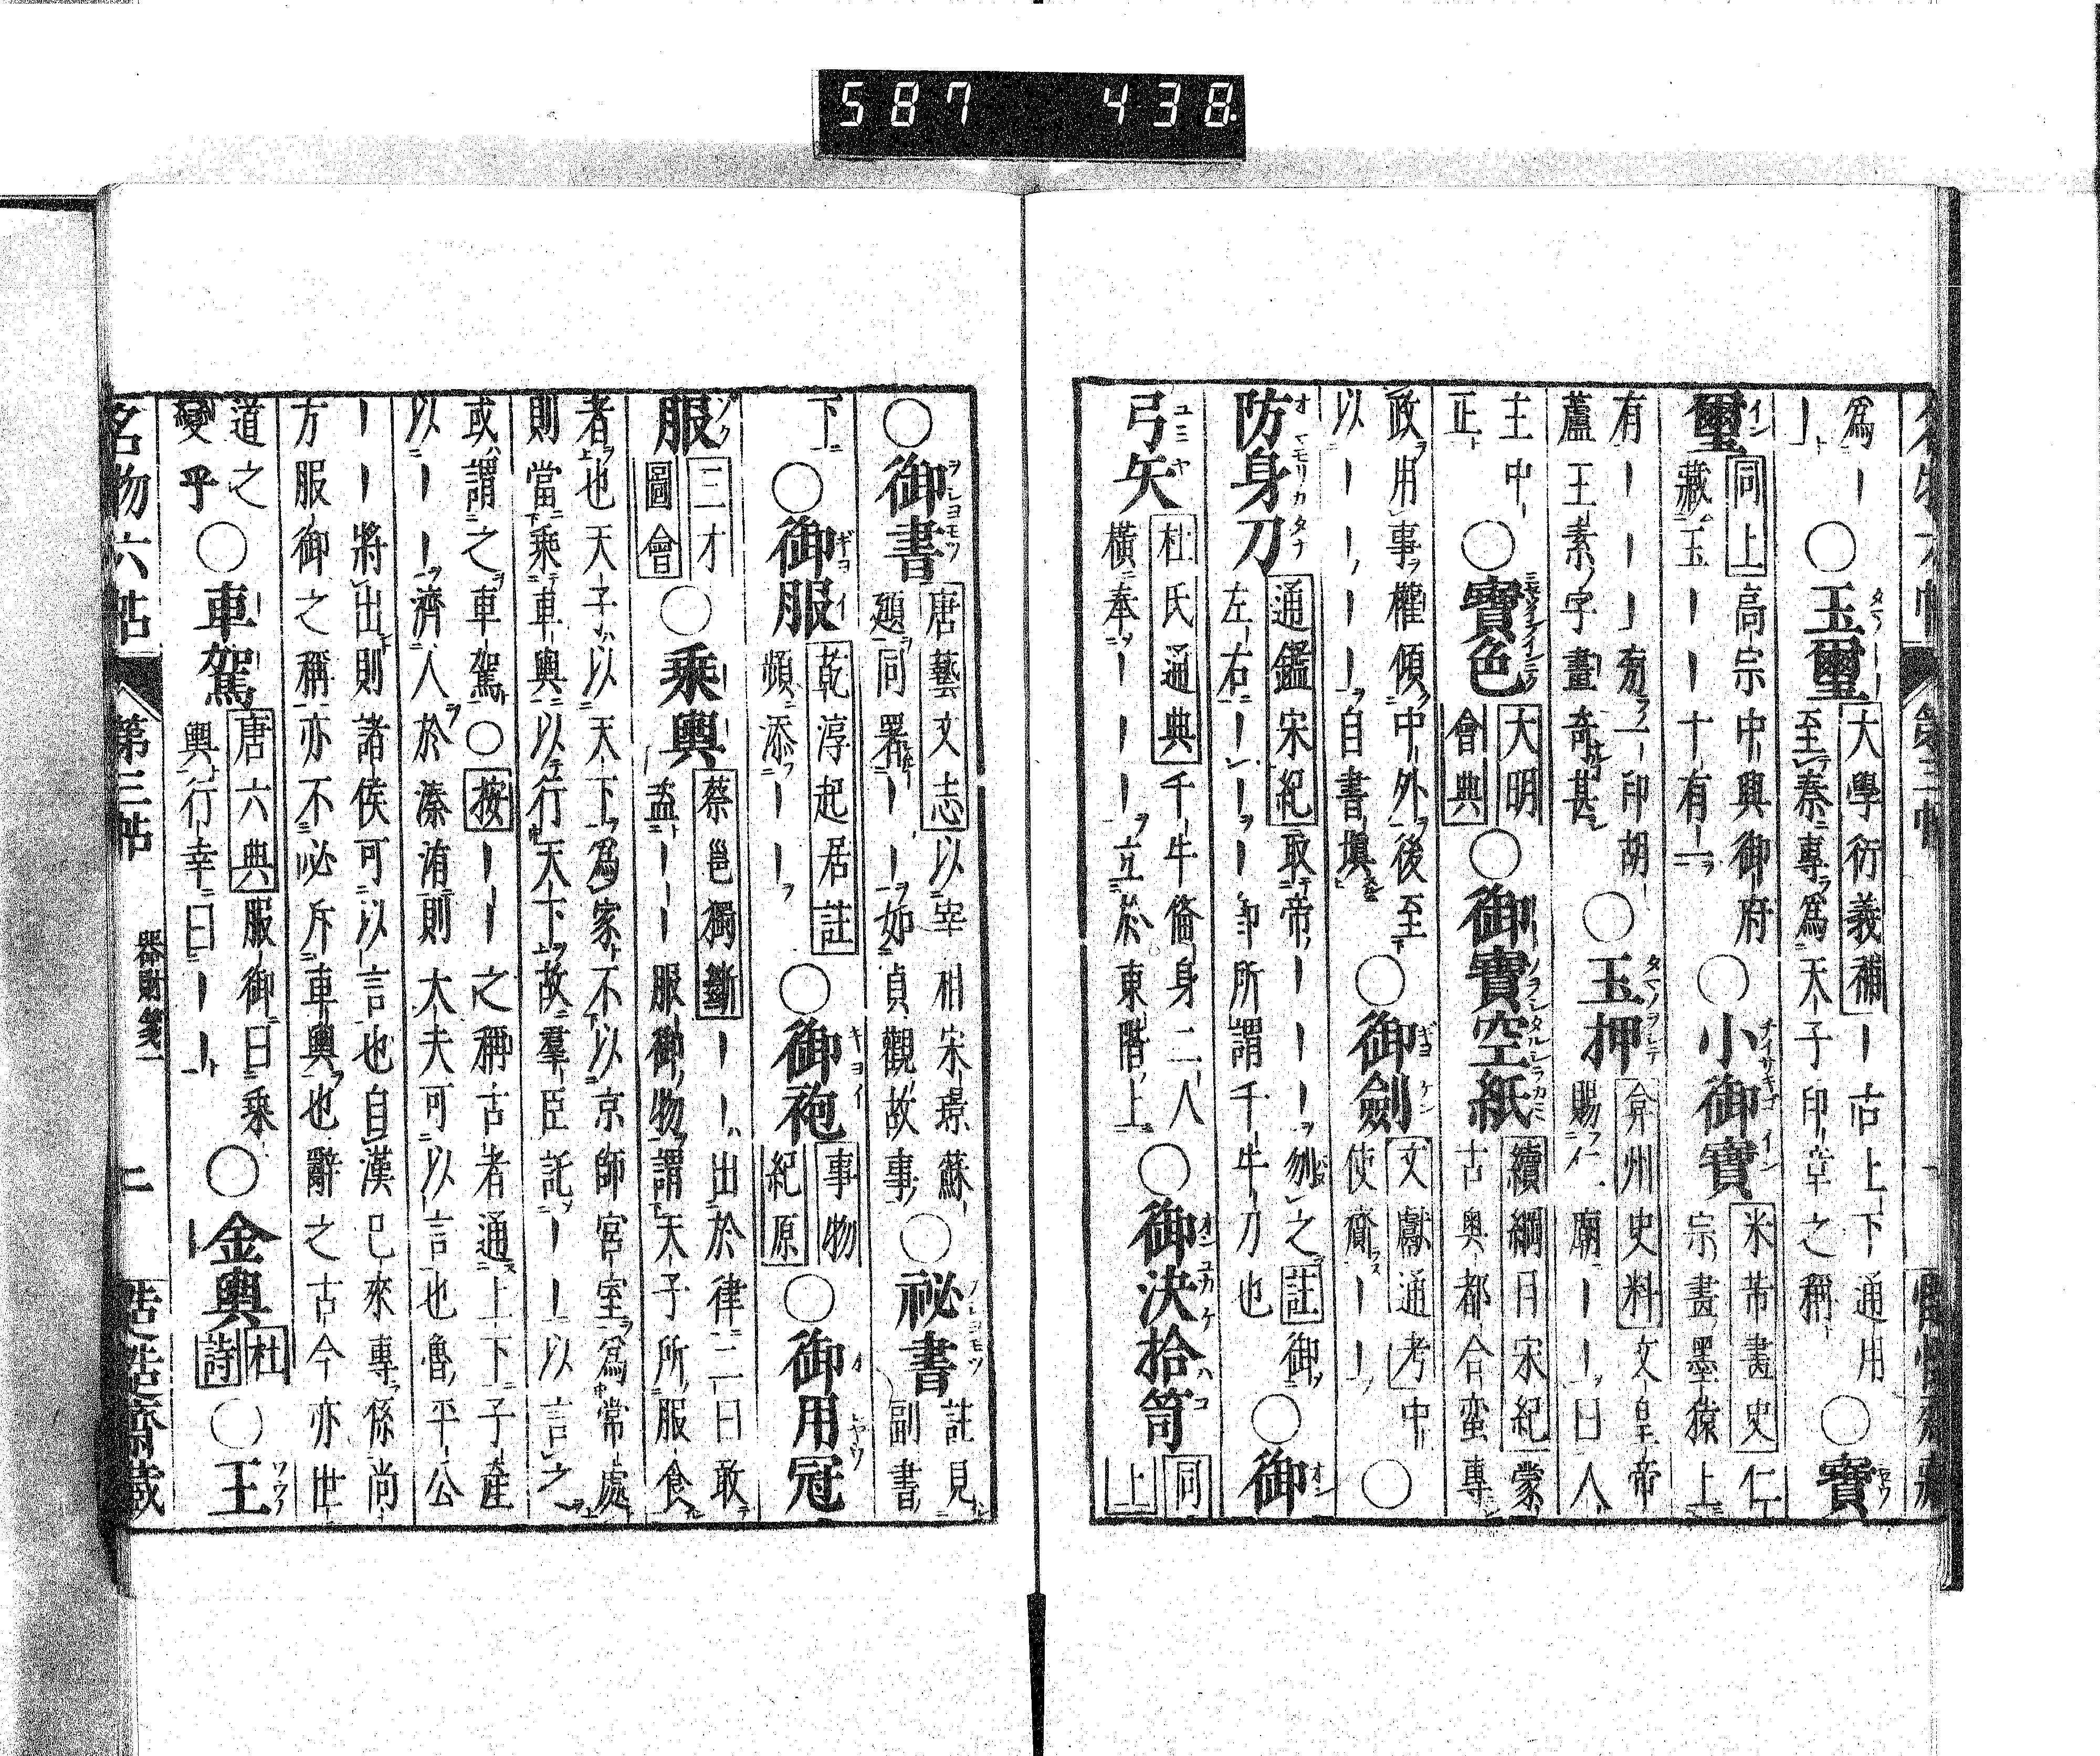 名物六帖 第三帖
爲｜｜○玉璽 大學衍義補 ｜古上下通用至秦專爲天子印章之稱 ○寶
璽 同上 高宗中興御府藏玉｜｜十有一 ○小御寶 米芾書史 仁宗畫墨猿上
有｜｜｜有一印胡蘆王素字畫奇甚 ○玉押 弇州史料 文皇帝賜一廟｜｜曰人
主中正 ○寶色 大明會典 ○御寶空紙 續綱目宋紀 蒙古奥都合蛮專
政用事權傾中外後至以｜｜｜｜自書塡 ○御劍 文獻通考 中使齎｜｜ ○
防身刀 通鑑宋紀 取帝｜｜｜刎之 註 御左右｜｜｜卽所謂千牛刀也 ○御
弓矢 杜氏通典 千牛備身二人横奉｜｜｜立於東階上 ○御決拾笥 同上
○御書 唐藝文志 以宰相宋璟蘇頲同署｜｜如貞觀故事 ○祕書 註見副書
下 ○御服 乾淳起居註 頻添｜｜ ○御袍 事物紀原 ○御用冠
服 三才圖會 ○乘輿 蔡邕獨斷 ｜｜出於律二曰敢盜｜｜服御物謂天子所服食
者也天子以天下爲家不以京師宮室爲常處則當乘車輿以行天下故羣臣託｜｜以言之
或謂之車駕○按｜｜之稱古者通上下子產以｜｜濟人於溱洧則大夫可以言也魯平公
｜｜將出則諸侯可以言也自漢已來專係尚方服御之稱亦不必斥車輿也辭之古今亦世
道之變乎 ○車駕 唐六典 服御曰乘輿行幸曰｜｜ ○金輿 杜詩 ○王
名物六帖 第三帖 器財箋一 二